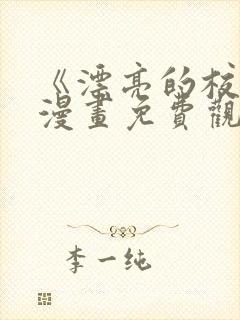 《漂亮的校
漫畫免費觀
李一纯